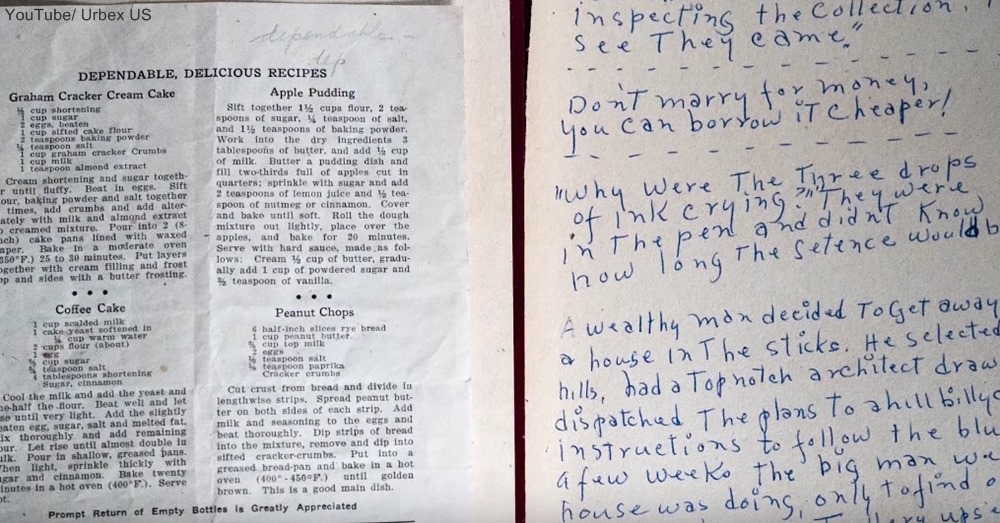 YouTube/ Urbex US
dependable -
dep
DEPENDABLE, DELICIOUS RECIPES
Graham Cracker Cream Cake
½ cup shortening
1 cup sugar
2 eggs, beaten
1 cup sifted cake flour
2 teaspoons baking powder
¼ teaspoon salt
1 cup graham cracker Crumbs
1 cup milk
1 teaspoon almond extract
Cream shortening and sugar togeth-
r until fluffy. Beat in eggs. Sift
our, baking powder and salt together
times, add crumbs and add alter-
ately with milk and almond extract
creamed mixture. Pour into 2 (8-
nch) cake pans lined with waxed
aper. Bake in a moderate oven
350°F.) 25 to 30 minutes. Put layers
ogether with cream filling and frost
op and sides with a butter frosting.
Coffee Cake
1 cup scalded milk
1 cake yeast softened in
¼ cup warm water
2 cups flour (about)
1 egg
cup sugar
teaspoon salt
tablespoons shortening
Sugar, cinnamon
Cool the milk and add the yeast and
ne-half the flour. Beat well and let
se until very light. Add the slightly
eaten egg, sugar, salt and melted fat,
ix thoroughly and add remaining
our. Let rise until almost double in
ulk. Pour in shallow, greased pans.
hen light, sprinkle thickly with
ugar and cinnamon. Bake twenty
inutes in a hot oven (400°F.). Serve
ot.
Apple Pudding
Sift together 1½ cups flour, 2 tea-
spoons of sugar, ¼ teaspoon of salt,
and 1½ teaspoons of baking powder.
Work into the dry ingredients 3
tablespoons of butter, and add ½ cup
of milk. Butter a pudding dish and
fill two-thirds full of apples cut in
quarters; sprinkle with sugar and add
2 teaspoons of lemon juice and ½ tea-
spoon of nutmeg or cinnamon. Cover
and bake until soft. Roll the dough
mixture out lightly, place over the
apples, and bake for 20 minutes.
Serve with hard sauce, made as fol-
lows: Cream ½ cup of butter, gradu-
ally add 1 cup of powdered sugar and
⅔ teaspoon of vanilla.
Peanut Chops
6 half-inch slices rye bread
1 cup peanut butter
cup top milk
2 eggs
½ teaspoon salt
¼ teaspoon paprika
Cracker crumbs
Cut crust from bread and divide in
lengthwise strips. Spread peanut but-
ter on both sides of each strip. Add
milk and seasoning to the eggs and
beat thoroughly. Dip strips of bread
into the mixture, remove and dip into
sifted cracker-crumbs. Put into a
greased bread-pan and bake in a hot
oven (400°-450°F.) until golden
brown. This is a good main dish.
Prompt Return of Empty Bottles is Greatly Appreciated
Inspecting the collection.
see They came."
Don't marry for money,
you can borrow iT cheaper!
"Why Were The Three drops
of ink crying?" "They were
in The pen and didn't Know
how long The setence would b
A wealthy man decided To Get away
a house In The sticks. He selected
hills, had a Top notch architect draw
dispatched The plans to a hill billy
instructions to follow the blu
a few weeks the big man we
house was doing, only to find o